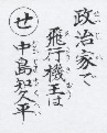 政治家で
飛行機王は
せ
中島知久平